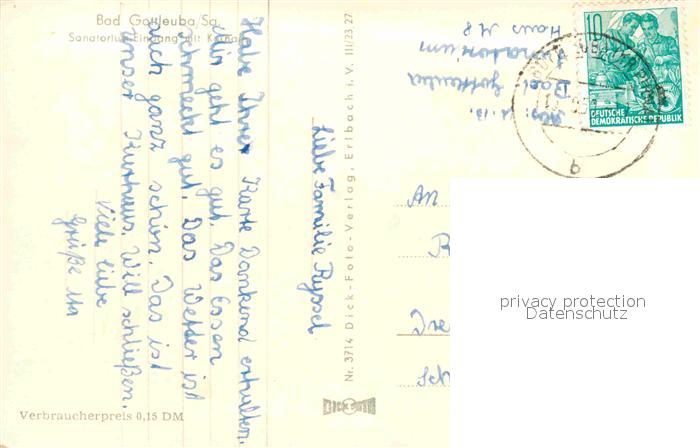 Bad Gottleuba/Sa.
Sanatorium Eingang mit Kurhaus
Liebe Familie Ryssel.
Habe Ihre Karte Dankend erhalten.
Mir geht es gut. Das Essen
schmeckt gut. Das Wetter ist
auch ganz schön. Das ist
unser Kurhaus. Will schließen.
Viele liebe
Grüße
Bad Gottleuba
Sanatorium
Haus M 8
10
DEUTSCHE
DEMOKRATISCHE REPUBLIK
b
An
Nr. 3714 Dick-Foto-Verlag, Erlbach i. V. III/23 27
DICK FOTO
Verbraucherpreis 0,15 DM
privacy protection
Datenschutz